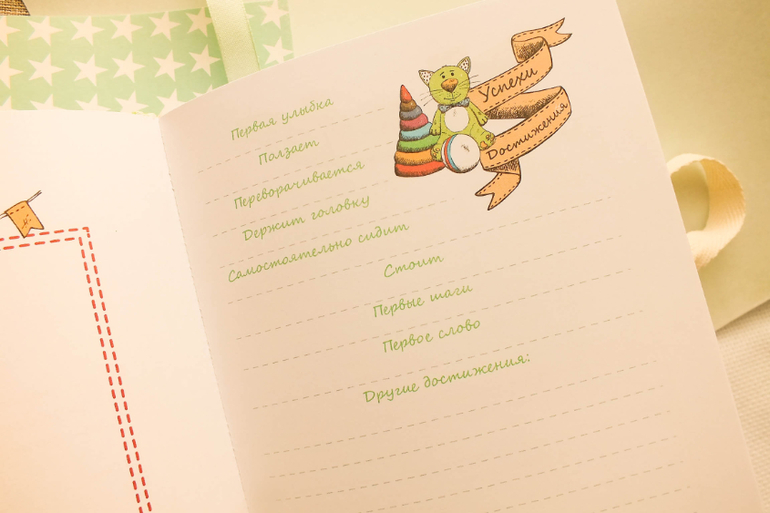 Успехи
Достижения
Первая улыбка
Ползает
Переворачивается
Держит головку
Самостоятельно сидит
Стоит
Первые шаги
Первое слово
Другие достижения: